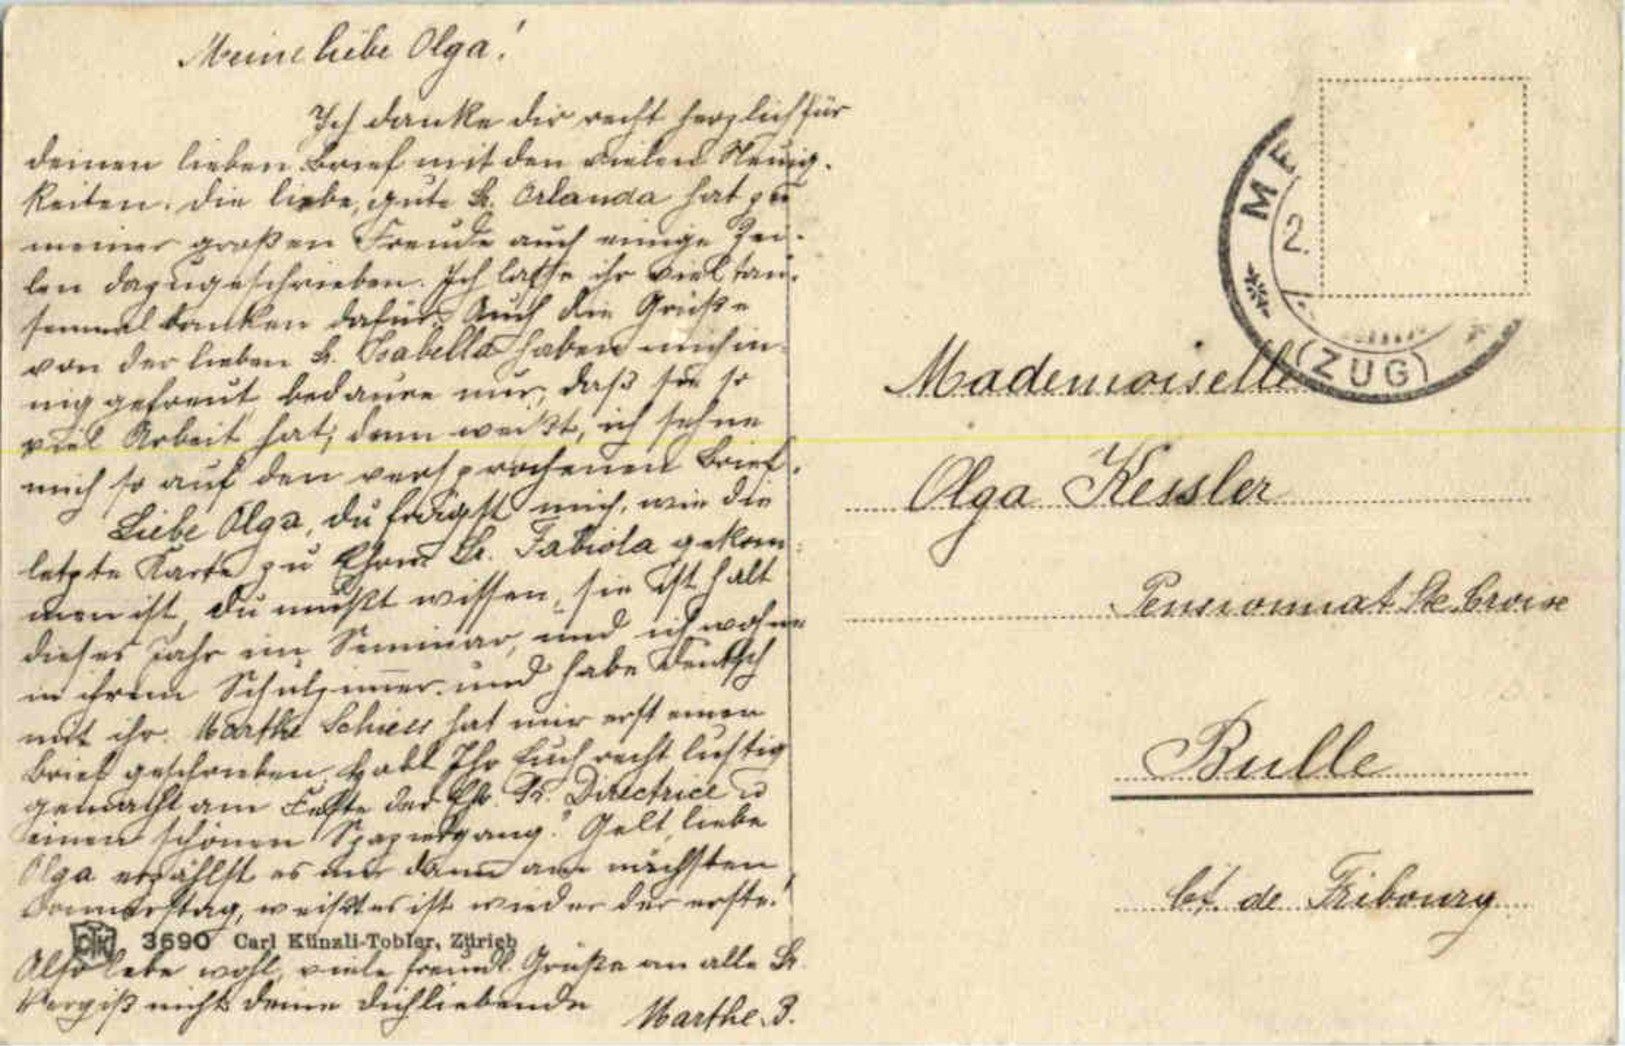 Meine liebe Olga!
Ich danke dir recht herzlich für
deinen lieben Brief mit den vielen Neuig-
keiten. Die liebe, gute Sr. Orlanda hat zu
meiner großen Freude auch einige Zei-
len dazugeschrieben. Ich lasse ihr viel tau-
senmal danken dafür. Auch die Grüße
von der lieben Sr. Isabella haben mich in-
nig gefreut, bedaure nur, daß sie so
viel Arbeit hat, denn weißt, ich sehne
mich so auf den versprochenen Brief.
Liebe Olga, du frägst mich, wie die
letzte Karte zu Ehrw. Sr. Fabiola gekom-
men ist, du mußt wissen, sie ist halt
dieses Jahr im Seminar, und ich wohne
in ihrem Schulzimmer und habe Deutsch
mit ihr. Marthe Schiess hat mir erst einen
Brief geschrieben. Habt Ihr Euch recht lustig
gemacht am Feste der Ehr. Sr. Directrice u
einen schönen Spaziergang? Gelt, liebe
Olga erzählst es mir dann am nächsten
Donnerstag, weißt es ist wieder der erste!
CTK 3690 Carl Künzli-Tobler, Zürich
Also lebe wohl, viele freundl. Grüße an alle Sr.
Vergiß nicht deine dichliebende
Marthe. B.
2.
(ZUG)
Mademoiselle
Olga Kessler
Pensionnat Ste. Croix
Bulle
Ct. de Fribourg